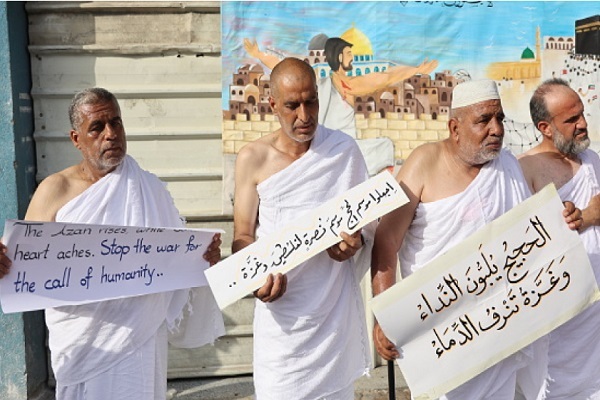 The Azan rises, while
heart aches. Stop the war for
the call of humanity..
إجعلوا موسم الحج موسم نصرة لفلسطين وغزة ..
الحجيج يلبون النداء
وغزة تنزف الدماء